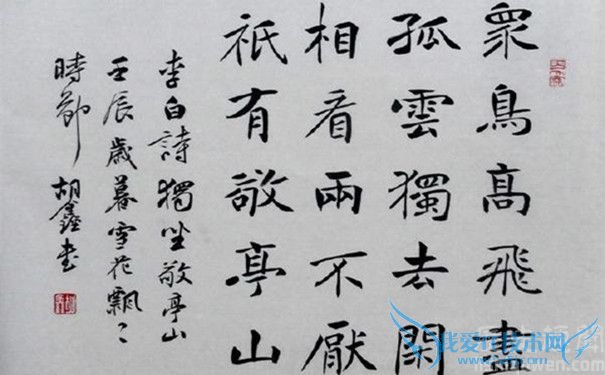 眾鳥高飛盡
孤雲獨去閑
相看兩不厭
祇有敬亭山
李白詩獨坐敬亭山
壬辰歲暮雪花飄〻
時節胡鑫书
我爱行技术网